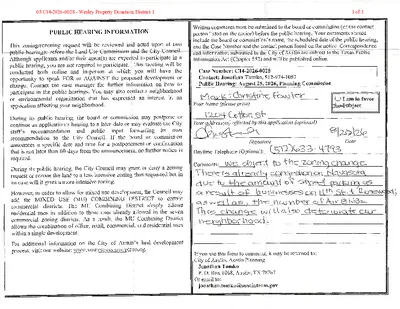 03 C14-2026-0028 - Wesley Property Donation; District 1
1 of 1
PUBLIC HEARING INFORMATION
This zoning/rezoning request will be reviewed and acted upon at two
public hearings: before the Land Use Commission and the City Council.
Although applicants and/or their agent(s) are expected to participate in a
public hearing, you are not required to participate. This meeting will be
conducted both online and in-person at which you will have the
opportunity to speak FOR or AGAINST the proposed development or
change. Contact the case manager for further information on how to
participate in the public hearings. You may also contact a neighborhood
or environmental organization that has expressed an interest in an
application affecting your neighborhood.
During its public hearing, the board or commission may postpone or
continue an application's hearing to a later date or may evaluate the City
staff's recommendation and public input forwarding its own
recommendation to the City Council. If the board or commission
announces a specific date and time for a postponement or continuation
that is not later than 60 days from the announcement, no further notice is
required.
During its public hearing, the City Council may grant or deny a zoning
request or rezone the land to a less intensive zoning than requested but in
no case will it grant a more intensive zoning.
However, in order to allow for mixed use development, the Council may
add the MIXED USE (MU) COMBINING DISTRICT to certain
commercial districts. The MU Combining District simply allows
residential uses in addition to those uses already allowed in the seven
commercial zoning districts. As a result, the MU Combining District
allows the combination of office, retail, commercial, and residential uses
within a single development.
For additional information on the City of Austin's land development
process, visit our website:
Written comments must be submitted to the board or commission (or the contact
person listed on the notice) before the public hearing. Your comments should
include the board or commission's name, the scheduled date of the public hearing,
and the Case Number and the contact person listed on the notice. Correspondence
and information submitted to the City of Austin are subject to the Texas Public
Information Act (Chapter 552) and will be published online.
Case Number: C14-2026-0028
Contact: Jonathan Tomko, 512-974-1057
Public Hearing: August 25, 2026, Planning Commission
Mark & Christine Fowler
Your Name (please print)
I am in favor
I object
1204 Cotton St
Your address(es) affected by this application (optional)
Signature
Date
Daytime Telephone (Optional): (512) 633-4793
Comments: We object to the zoning change.
There is already congestion on Navasota
due to the amount of street parking as
a result of businesses on 11th St. &
as well as, the number of Air BNBs
This change will also deteriorate our
neighborhood.
If you use this form to comment, it may be returned to:
City of Austin, Austin Planning
Jonathan Tomko
P. O. Box 1088, Austin, TX 78767
Or email to:
jonathan.tomko@austintexas.gov